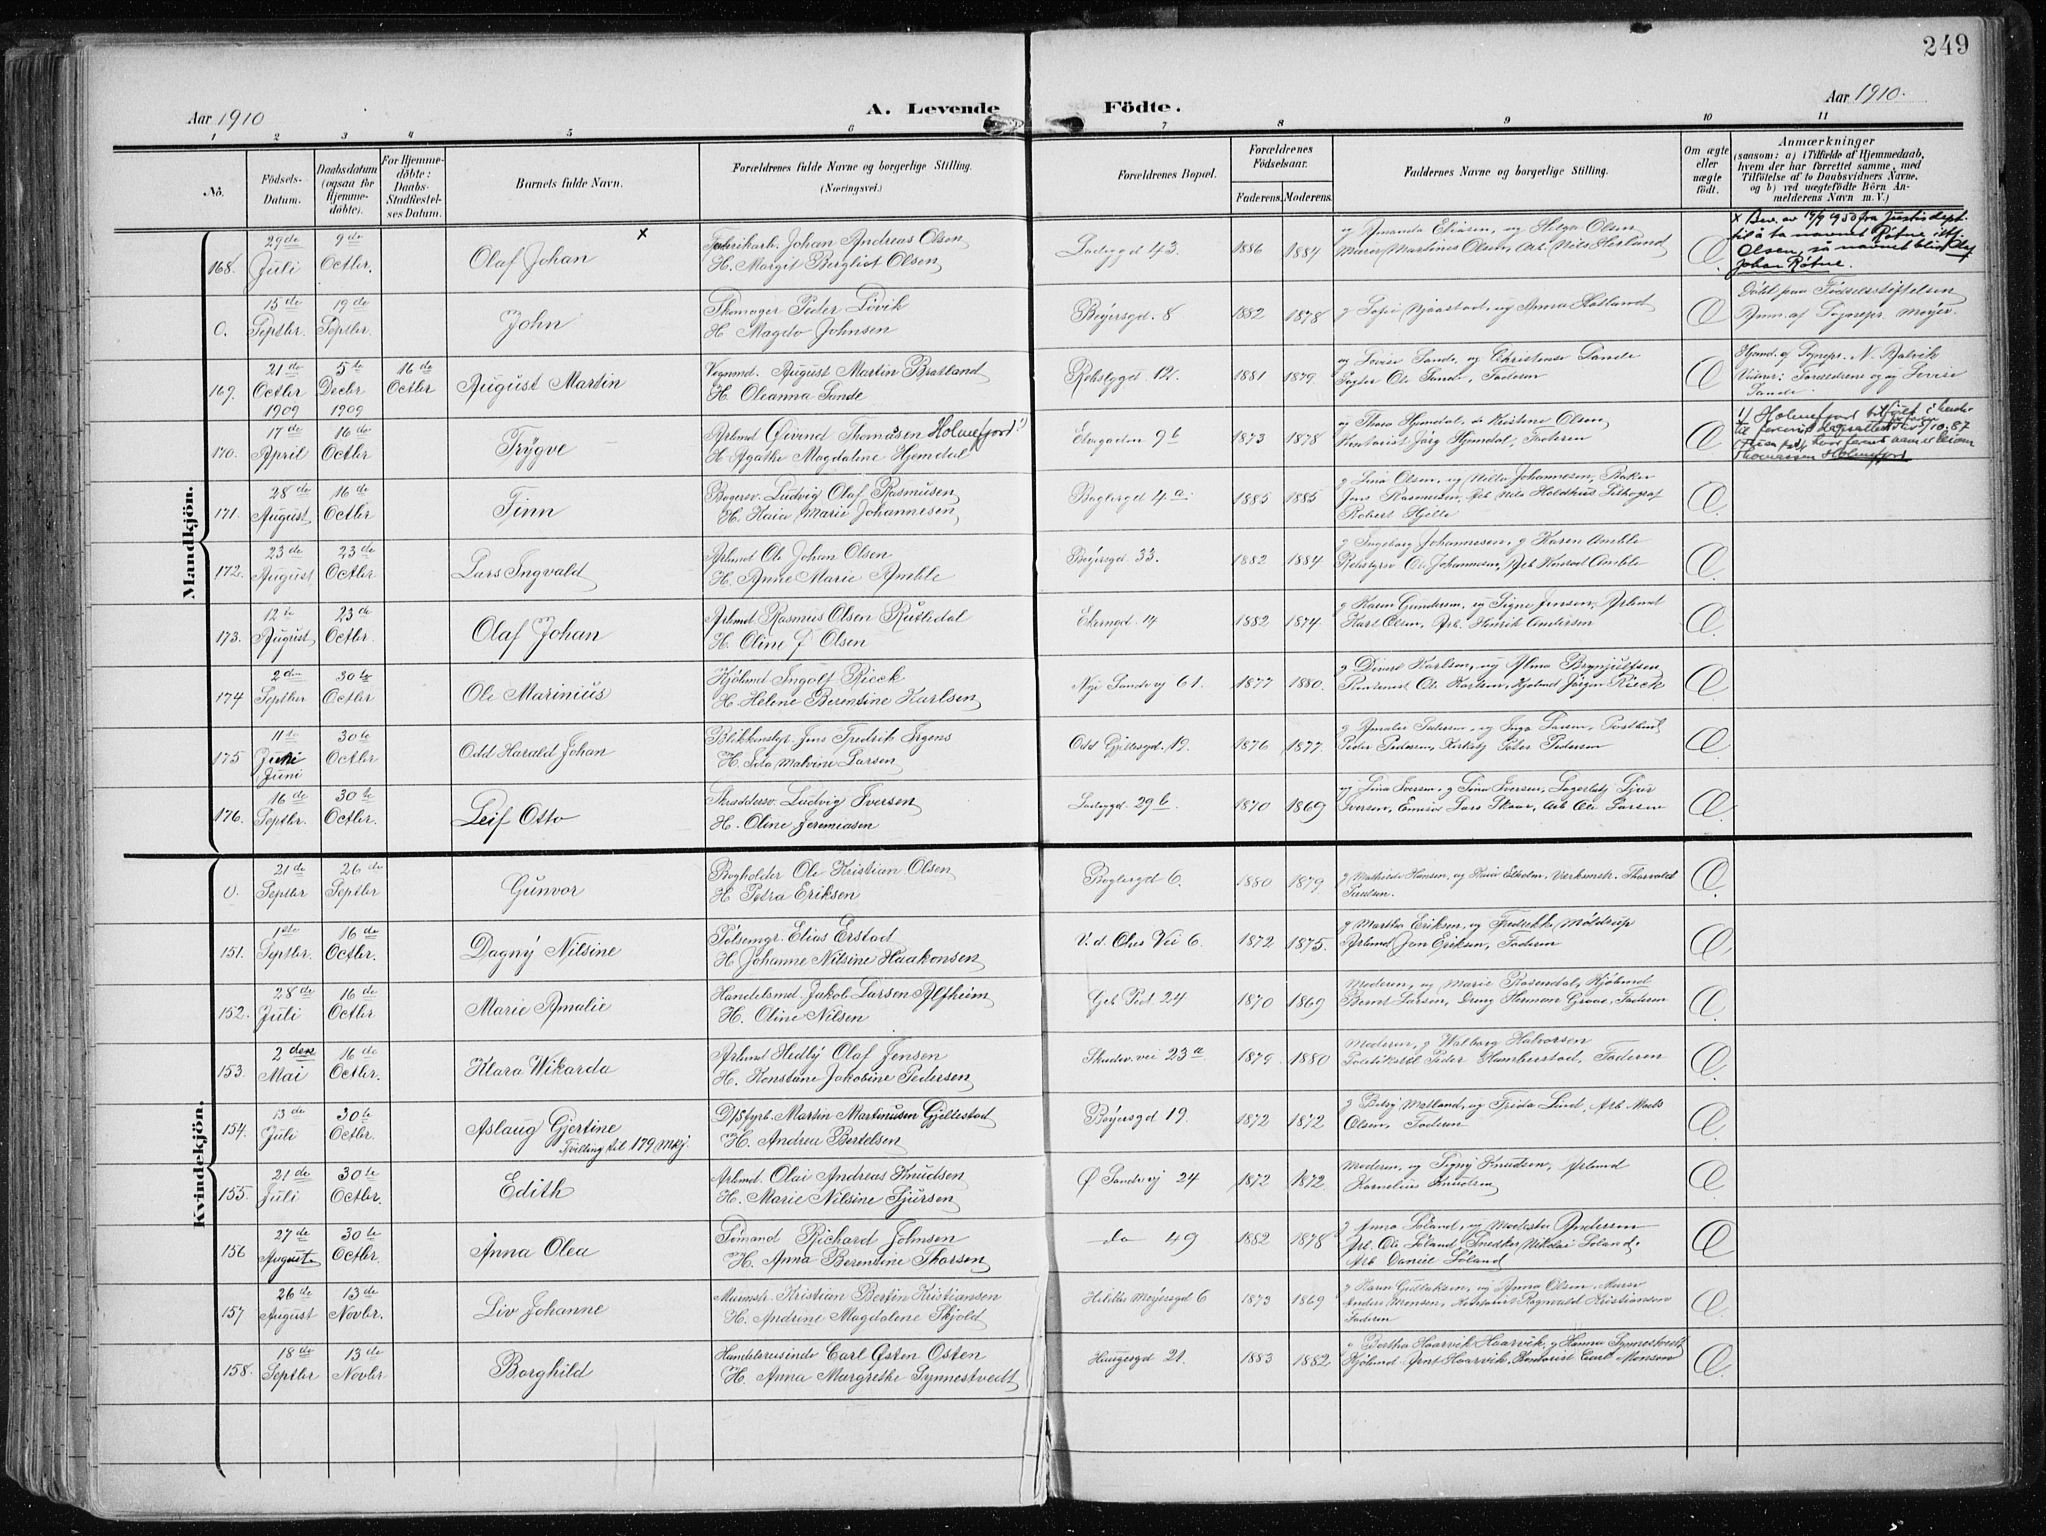 249
Aar 1910
A. Levende
Födte.
Aar 1910.
1 2 3 4 5 6 7 8 9 10 11
No.
Födsels-
Datum.
Daabsdatum
(ogsaa for
Hjemme-
döbte).
For Hjemme-
döbte:
Daabs-
Stadfæstel-
ses Datum.
Barnets fulde Navn.
Forældrenes fulde Navne og borgerlige Stilling.
(Næringsvei.)
Forældrenes Bopæl.
Forældrenes
Födselsaar.
Faderens. Moderens.
Faddernes Navne og borgerlige Stilling.
Om ægte
eller
uægte
födt.
Anmærkninger
(saasom: a) i Tilfælde af Hjemmedaab,
hvem der har forrettet samme, med
Tilföielse af to Daabsvidners Navne,
og b) ved uægtefödte Börn An-
melderens Navn m. V.)
Mandkjön.
168. 29de Juli 9de Octbr. Olaf Johan x
Fabrikarb. Johan Andreas Olsen
H. Margit Bergliot Olsen
43. 1886 1884
Amanda Eliasen, og Helga Olsen
Martines Olsen, Arb. Nils Hisland
x Bev. av 19/9 1950 fra Justisdept.
til å ta navnet Røtne, istf.
Olsen, så navnet blir Olaf
Johan Røtne.
0. 15de Septbr. 19de Septbr. John
Skomager Peder Lövik
H. Magda Johnsen
Böiersgd. 8 1882 1878
g Sofie Njaastad, og Anna Hatland
Döbt paa Födselsstiftelsen
Anm. af Sognepr. Meyer
169. 21de Octbr 1909 5te Decbr 1909 16de Octbr August Martin
Vognmd. August Martin Bratland
H. Oleanna Sande
12. 1881 1879.
ug Lovise Sande, ug Christense Sande
Ole Sande, Faderen
Hjmd. af Sognepr. N. Balvik
Vidner: Forældrene og ug Lovise
Sande
170. 17de April 16de Octbr Trygve
Arbmd Öivind Thomasen Holmefjord 1)
H. Agathe Magdaline Hjemdal
Elvegaden 9b 1873 1878
ug Thea Hjemdal, do Kristine Olsen,
Kontorist Jörg Hjemdal, Faderen
1) Holmefjord tilföiet i henh.
til
Thomassen Holmefjord
171. 28de August 16de Octbr Finn
Bagersv. Ludvig Olaf Rasmusen
H. Kaia Marie Johannesen
Baglergd 4a 1885 1885
g Lina Olsen, ug Milla Johannesen, Baker
Jens Rasmusen, Arb Nils Holdhus Lithograf
Robert Hjelle
172. 23de August 23de Octbr Lars Ingvald
Arbmd Ole Johan Olsen
H. Anne Marie Amble
Böiersgd 33. 1882 1884
g Ingeborg Johannesen, g Karen Amble
Rebslgrsv Ole Johannesen, Arb Konrad Amble
173. 12te August 23de Octbr Olaf Johan
Arbmd Rasmus Olsen Rutledal
H. Oline J Olsen
Ekrengd. 14 1882 1874
g Karen Gundersen, ug Signe Jensen, Arbmd
Karl Olsen, Arb. Henrik Andersen
174 2den Septber 30te Octbr Ole Marinius
Kjöbmd Ingolf Rieck
H. Helene Berentine Karlsen
Nye Sandsvj 61 1877 1880.
g Karlsen, ug Alma Brynjulfsen
Ole Karlsen, Kjobmd Jörgen Rieck
175 11te Juni Juni 30te Octbr Odd Harald Johan
Blikkenslgr. Jens Fredrik Irgens
H. Sita Malvine Larsen
Odd Gjelesgd. 19. 1876 1877.
g Amalie Pedersen, ug Inga Larsen, Postbud
Peder Pedersen, Kirketj Peter Pedersen
176. 16de Septbr. 30te Octbr. Leif Otto
Skræddersv. Ludvig Iversen
H. Oline Jeremiasen
29b 1870 1869
ug Lina Iversen, g Sina Iversen,
Iversen, Lars Skaar, Arb Ole Larsen
Kvindekjön.
0 21de Septbr 26de Septbr Gunvor
Bogholder Ole Kristian Olsen
H Petra Eriksen
Baglergd 6. 1880 1879
g Mathilde Hansen, ug Kaia Ekholm, Verksmstr. Thorvald
Paulsen.
151. 1ste Septbr. 16de Octbr. Dagny Nilsine
Pölsemgr. Elias Erstad
H Johanne Nilsine Haakonsen
V. d. Ohes Vei 6. 1872 1875.
g Martha Eriksen, ug Fredrikke Möldrup
Arbmd Jon Eriksen, Faderen
152. 28de Juli 16de Octbr Marie Amalie
Handelsmd. Jakob Larsen Alfheim
H. Oline Nilsen
Geb Ped. 24 1870 1869
Moderen, ug Marie Rosendal, Kjöbmd
Bernt Larsen, Dreng Herman Graae, Faderen
153. 2den Mai 16de Octbr. Klara Wikarda
Arbmd Hedly Olaf Jensen
H. Konstanse Jakobine Pedersen
Skudev. vei 23a 1879 1880
Moderen, g Walborg Halvorsen
Peder Humberstad, Faderen
154. 13de Juli 30te Octbr. Aslaug Gjertine
Tvilling til 179 Mkj.
D/sfyrb. Martin Martinusen Gjellestad
H. Andrea Bertelsen
Böiersgd 19. 1872 1872
g Betsy Melland, ug Frida Lind, Arb Mads
Olsen, Faderen
155. 21de Juli 30te Octbr. Edith
Arbmd. Olai Andreas Knudsen
H. Marie Nilsine Sjursen
Ø Sandsvj 24 1872 1872.
Moderen, ug Signy Knudsen, Arbmd
Kornelius Knudsen
156 27de August 30te Octbr. Anna Olea
Sömand Richard Johnsen
H. Anna Berentine Thorsen
do 49 1882 1878
g Anna Söland, ug Modesta Andersen
Arb. Ole Söland, Snedker Nikolai Soland.
Arb Daniel Söland
157 26de August 13de Novbr. Liv Johanne
Murmstr. Kristian Bertin Kristiansen
H. Andrine Magdalene Skjold
Hildur Meyersgd 6 1873 1869
g Karen Gullaksen, ug Anna Olsen, Mursv
Anders Monsen, Kontorist Ragnvald Kristiansen
Faderen
158. 18de Septbr 13de Novbr Borghild
Handelsreisende Carl Østen Osten
H. Anna Margrethe Synnestvedt
Haugesgd 21. 1883 1882
g Bertha Haarvik Haarvik, g Hanna Synnestvedt
Kjöbmd Arnt Haarvik, Kontorist Carl Monsen